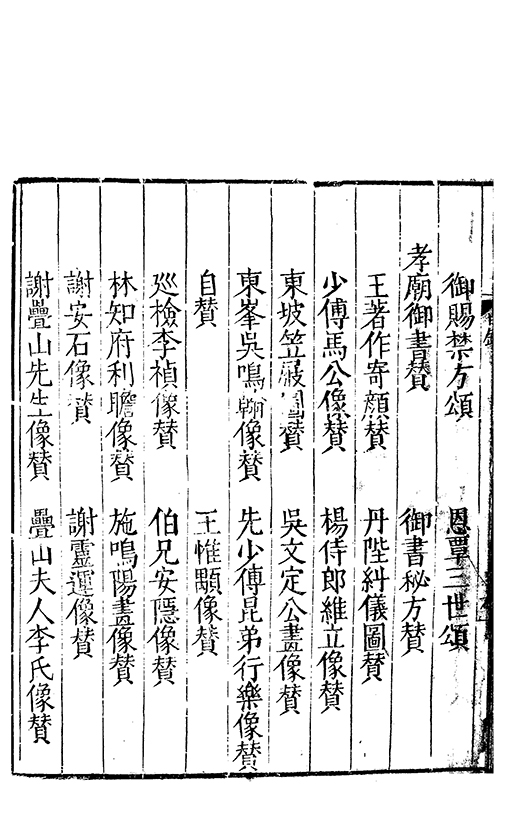 御賜禁方頌　恩覃三世頌
孝廟御書賛　御書秘方賛
王著作寄顏賛　丹陛糾儀圖賛
少傅馬公像賛　楊侍郎維立像賛
東坡笠屐圖賛　吳文定公畫像賛
東峯吳鳴翰像賛　先少傅昆弟行樂像賛
自賛　王惟顒像賛
廵檢李楨像賛　伯兄安隱像賛
林知府利瞻像賛　施鳴陽畫像賛
謝安石像賛　謝靈運像賛
謝疊山先生像賛　疊山夫人李氏像賛